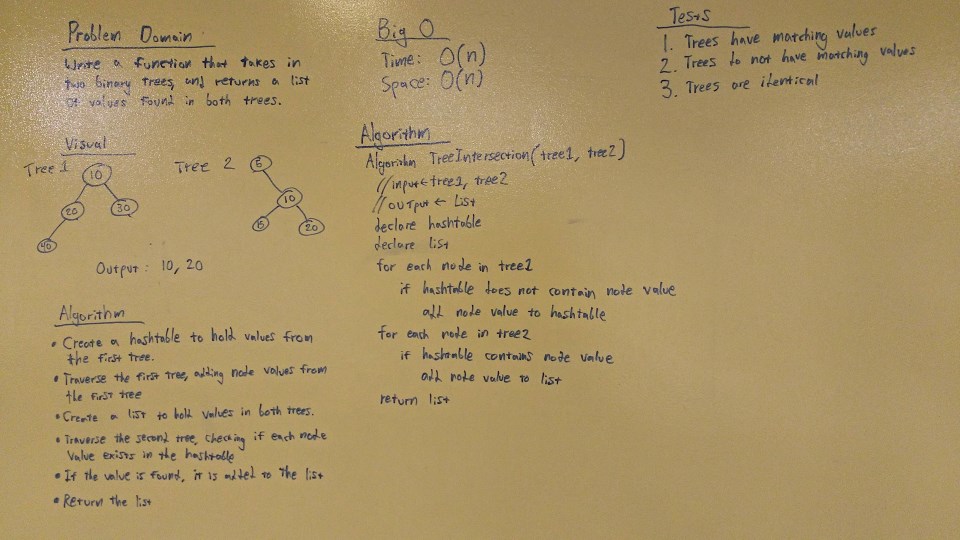 Problem Domain
Write a function that takes in
two binary trees, and returns a list
of values found in both trees.
Visual
Tree 1
10
20
30
40
Tree 2
5
10
15
20
Output: 10, 20
Algorithm
• Create a hashtable to hold values from
the first tree.
• Traverse the first tree, adding node values from
the first tree
• Create a list to hold values in both trees.
• Traverse the second tree, checking if each node
value exists in the hashtable
• If the value is found, it is added to the list
• Return the list
Big O
Time: O(n)
Space: O(n)
Algorithm
Algorithm TreeIntersection(tree1, tree2)
// input ← tree1, tree2
// output ← List
declare hashtable
declare list
for each node in tree1
if hashtable does not contain node value
add node value to hashtable
for each node in tree2
if hashtable contains node value
add node value to list
return list
Tests
1. Trees have matching values
2. Trees do not have matching values
3. Trees are identical